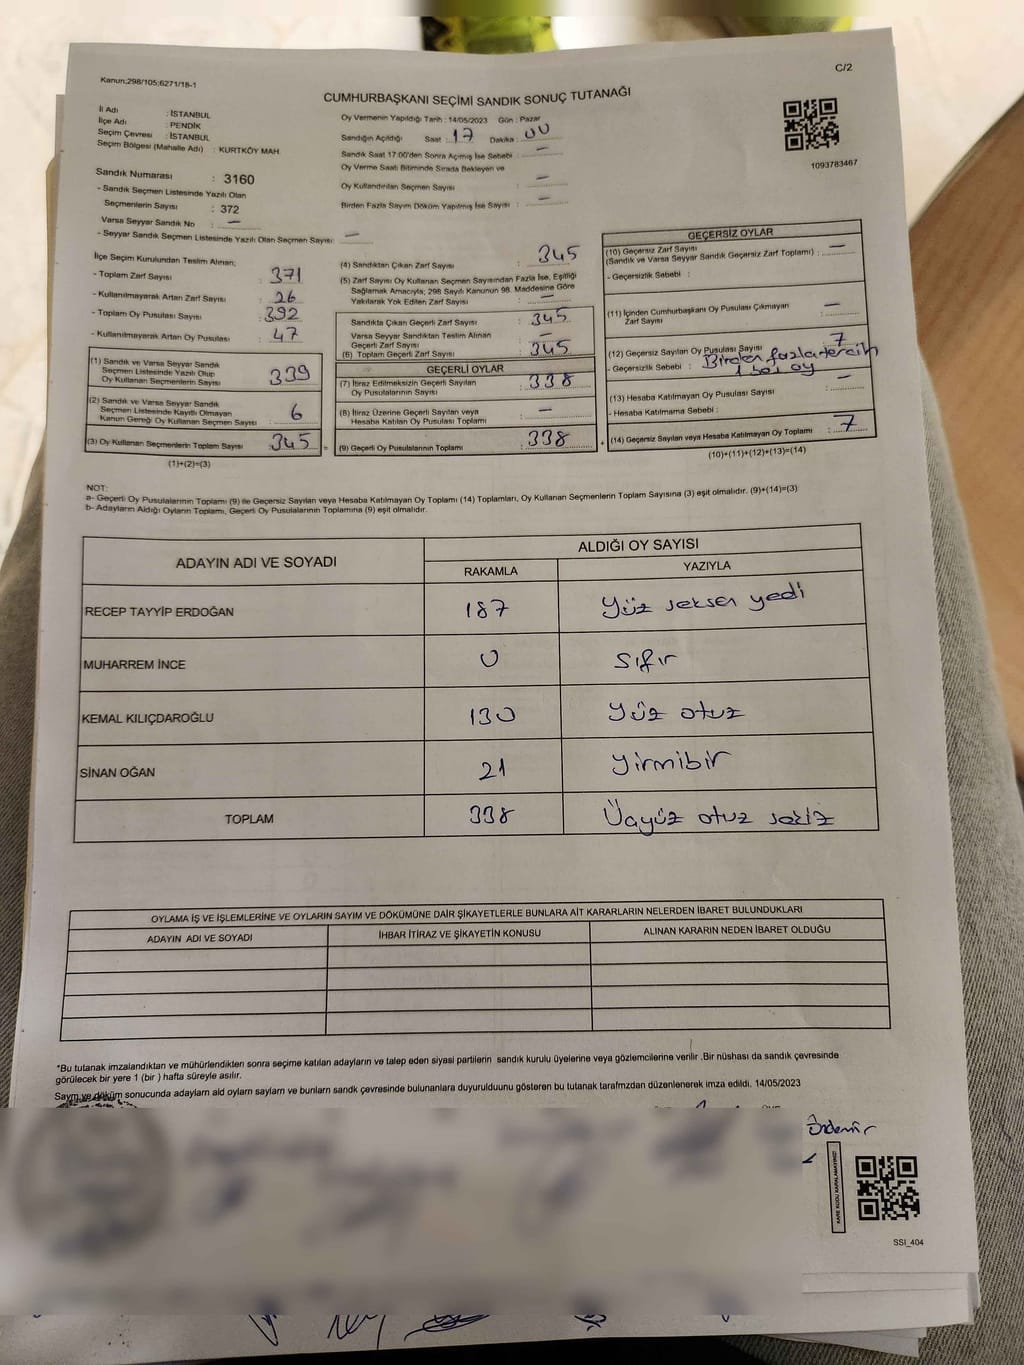 C/2
Kanun;298/105;6271/18-1
CUMHURBAŞKANI SEÇİMİ SANDIK SONUÇ TUTANAĞI
İl Adı : İSTANBUL
İlçe Adı : PENDİK
Seçim Çevresi : İSTANBUL
Seçim Bölgesi (Mahalle Adı) : KURTKÖY MAH.
Oy Vermenin Yapıldığı Tarih : 14/05/2023 Gün : Pazar
Sandığın Açıldığı Saat : 17 Dakika : 00
Sandık Saat 17:00'den Sonra Açımış İse Sebebi : —
Oy Verme Saati Bitiminde Sırada Bekleyen ve
Oy Kullandırılan Seçmen Sayısı : —
Birden Fazla Sayım Döküm Yapılmış İse Sayısı : —
1093783467
Sandık Numarası : 3160
- Sandık Seçmen Listesinde Yazılı Olan
Seçmenlerin Sayısı : 372
Varsa Seyyar Sandık No : —
- Seyyar Sandık Seçmen Listesinde Yazılı Olan Seçmen Sayısı : —
İlçe Seçim Kurulundan Teslim Alınan;
- Toplam Zarf Sayısı : 371
- Kullanılmayarak Artan Zarf Sayısı : 26
- Toplam Oy Pusulası Sayısı : 392
- Kullanılmayarak Artan Oy Pusulası : 47
(1) Sandık ve Varsa Seyyar Sandık
Seçmen Listesinde Yazılı Olup
Oy Kullanan Seçmenlerin Sayısı : 339
(2) Sandık ve Varsa Seyyar Sandık
Seçmen Listesinde Kayıtlı Olmayan
Kanun Gereği Oy Kullanan Seçmen Sayısı : 6
(3) Oy Kullanan Seçmenlerin Toplam Sayısı : 345 =
(1)+(2)=(3)
(4) Sandıktan Çıkan Zarf Sayısı : 345
(5) Zarf Sayısı Oy Kullanan Seçmen Sayısından Fazla İse, Eşitliği
Sağlamak Amacıyla; 298 Sayılı Kanunun 98. Maddesine Göre
Yakılarak Yok Edilen Zarf Sayısı : —
Sandıkta Çıkan Geçerli Zarf Sayısı : 345
Varsa Seyyar Sandıktan Teslim Alınan
Geçerli Zarf Sayısı : —
(6) Toplam Geçerli Zarf Sayısı : 345
GEÇERLİ OYLAR
(7) İtiraz Edilmeksizin Geçerli Sayılan
Oy Pusulasının Sayısı : 338
(8) İtiraz Üzerine Geçerli Sayılan veya
Hesaba Katılan Oy Pusulası Toplamı : —
(9) Geçerli Oy Pusulalarının Toplamı : 338 +
GEÇERSİZ OYLAR
(10) Geçersiz Zarf Sayısı
(Sandık ve Varsa Seyyar Sandık Geçersiz Zarf Toplamı) : —
- Geçersizlik Sebebi :
(11) İçinden Cumhurbaşkanı Oy Pusulası Çıkmayan
Zarf Sayısı : —
(12) Geçersiz Sayılan Oy Pusulası Sayısı : 7
- Geçersizlik Sebebi : Birden fazla tercih
1 boş oy
(13) Hesaba Katılmayan Oy Pusulası Sayısı : —
- Hesaba Katılmama Sebebi :
(14) Geçersiz Sayılan veya Hesaba Katılmayan Oy Toplamı : 7
(10)+(11)+(12)+(13)=(14)
NOT:
a- Geçerli Oy Pusulalarının Toplamı (9) ile Geçersiz Sayılan veya Hesaba Katılmayan Oy Toplamı (14) Toplamları, Oy Kullanan Seçmenlerin Toplam Sayısına (3) eşit olmalıdır. (9)+(14)=(3)
b- Adayların Aldığı Oyların Toplamı, Geçerli Oy Pusulalarının Toplamına (9) eşit olmalıdır.
ADAYIN ADI VE SOYADI ALDIĞI OY SAYISI
RAKAMLA YAZIYLA
RECEP TAYYİP ERDOĞAN 187 Yüz seksen yedi
MUHARREM İNCE 0 Sıfır
KEMAL KILIÇDAROĞLU 130 Yüz otuz
SİNAN OĞAN 21 Yirmibir
TOPLAM 338 Üçyüz otuz sekiz
OYLAMA İŞ VE İŞLEMLERİNE VE OYLARIN SAYIM VE DÖKÜMÜNE DAİR ŞİKAYETLERLE BUNLARA AİT KARARLARIN NELERDEN İBARET BULUNDUKLARI
ADAYIN ADI VE SOYADI İHBAR İTİRAZ VE ŞİKAYETİN KONUSU ALINAN KARARIN NEDEN İBARET OLDUĞU
*Bu tutanak imzalandıktan ve mühürlendikten sonra seçime katılan adayların ve talep eden siyasi partilerin sandık kurulu üyelerine veya gözlemcilerine verilir .Bir nüshası da sandık çevresinde
görülecek bir yere 1 (bir ) hafta süreyle asılır.
Saym ve döküm sonucunda adaylarn ald oylarn saylarn ve bunlarn sandk çevresinde bulunanlara duyurulduunu gösteren bu tutanak tarafmzdan düzenlenerek imza edildi. 14/05/2023
Özdemir
KARE KODU KARALAMAYINIZ!
SSI_404